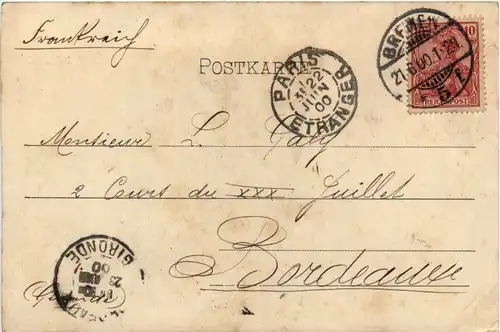 Frankreich
POSTKARTE
BREMEN
21.6.00.1-2N
10
REICHSPOST
PARIS
22
JUIN
00
ETRANGER
Monsieur L.
2 Cours du XXX Juillet
Bordeaux
GIRONDE
23
00